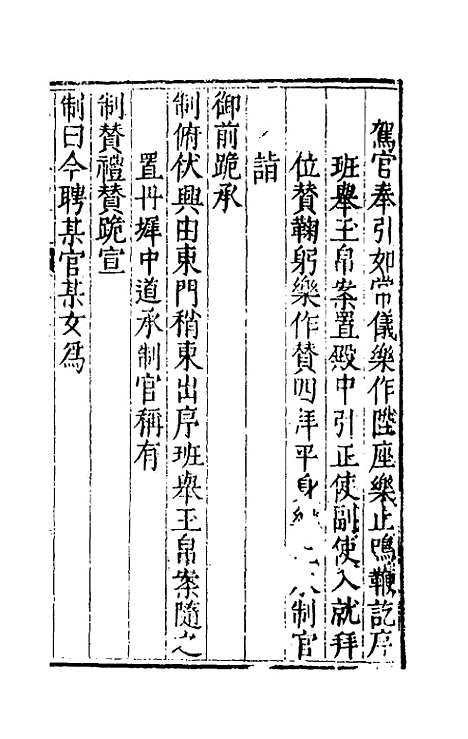 駕官奉引如常儀樂作陞座樂止鳴鞭訖序
班舉玉帛案置殿中引正使副使入就拜
位賛鞠躬樂作賛四拜平身 制官
詣
御前跪承
制俯伏興由東門稍東出序班舉玉帛案隨之
置丹墀中道承制官稱有
制賛禮賛跪宣
制曰今聘某官某女爲